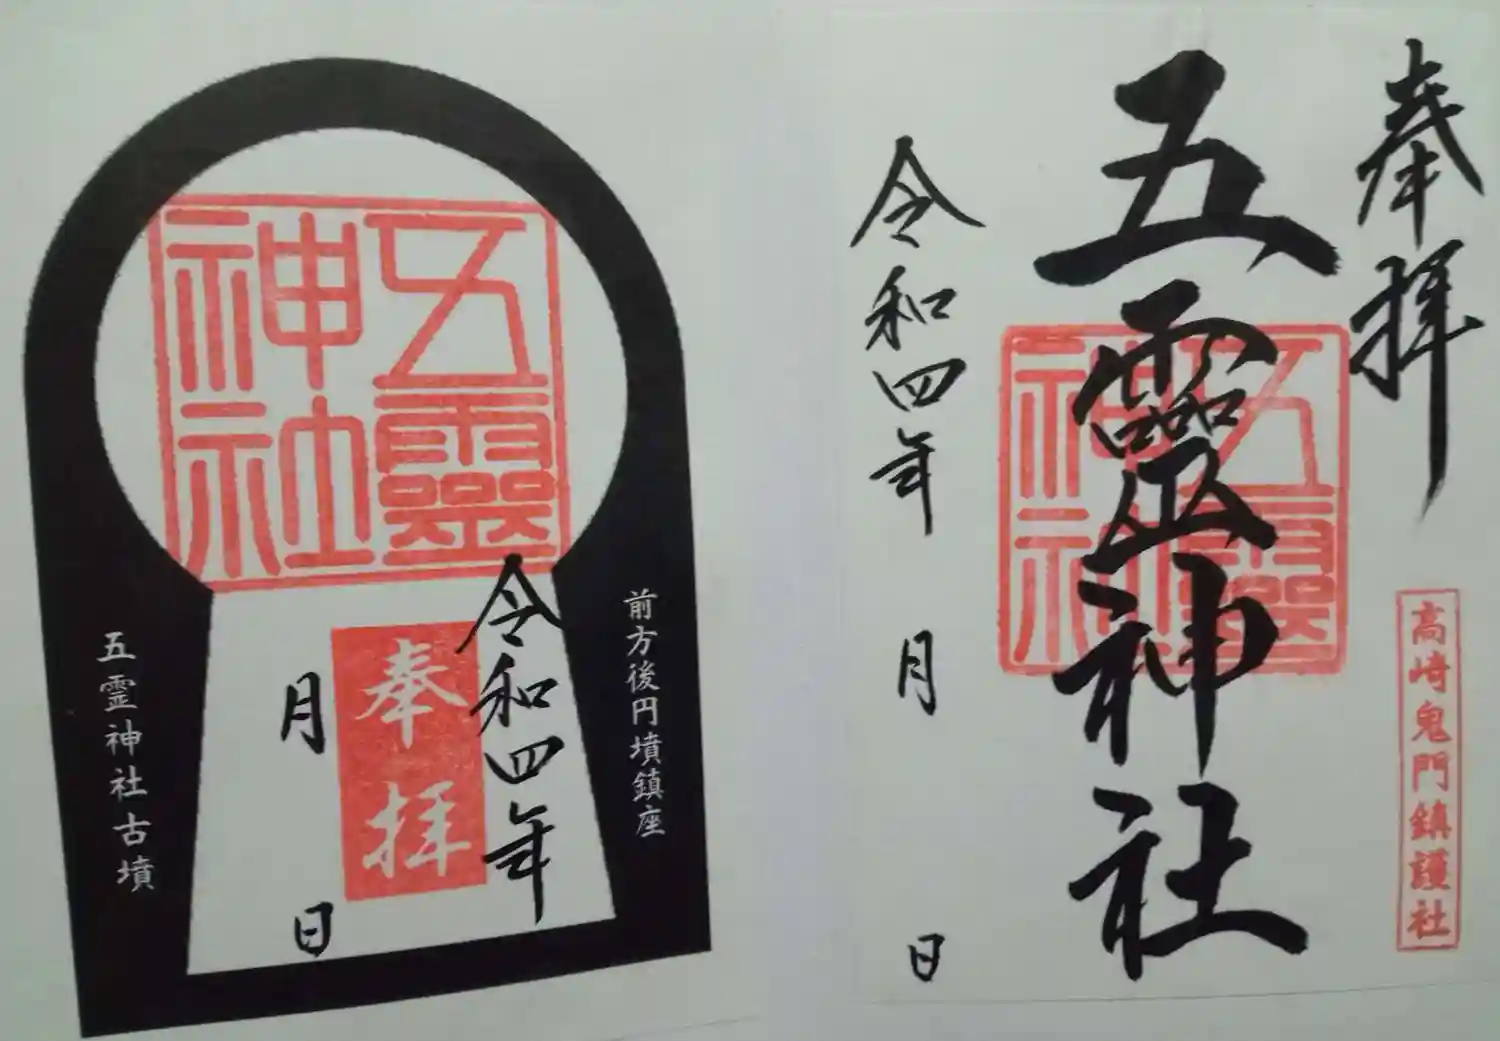 五靈
神社
前方後円墳鎮座
奉拝
令和四年
月
日
五霊神社古墳
奉拝
五靈神社
五靈
神社
高崎鬼門鎮護社
令和四年
月
日